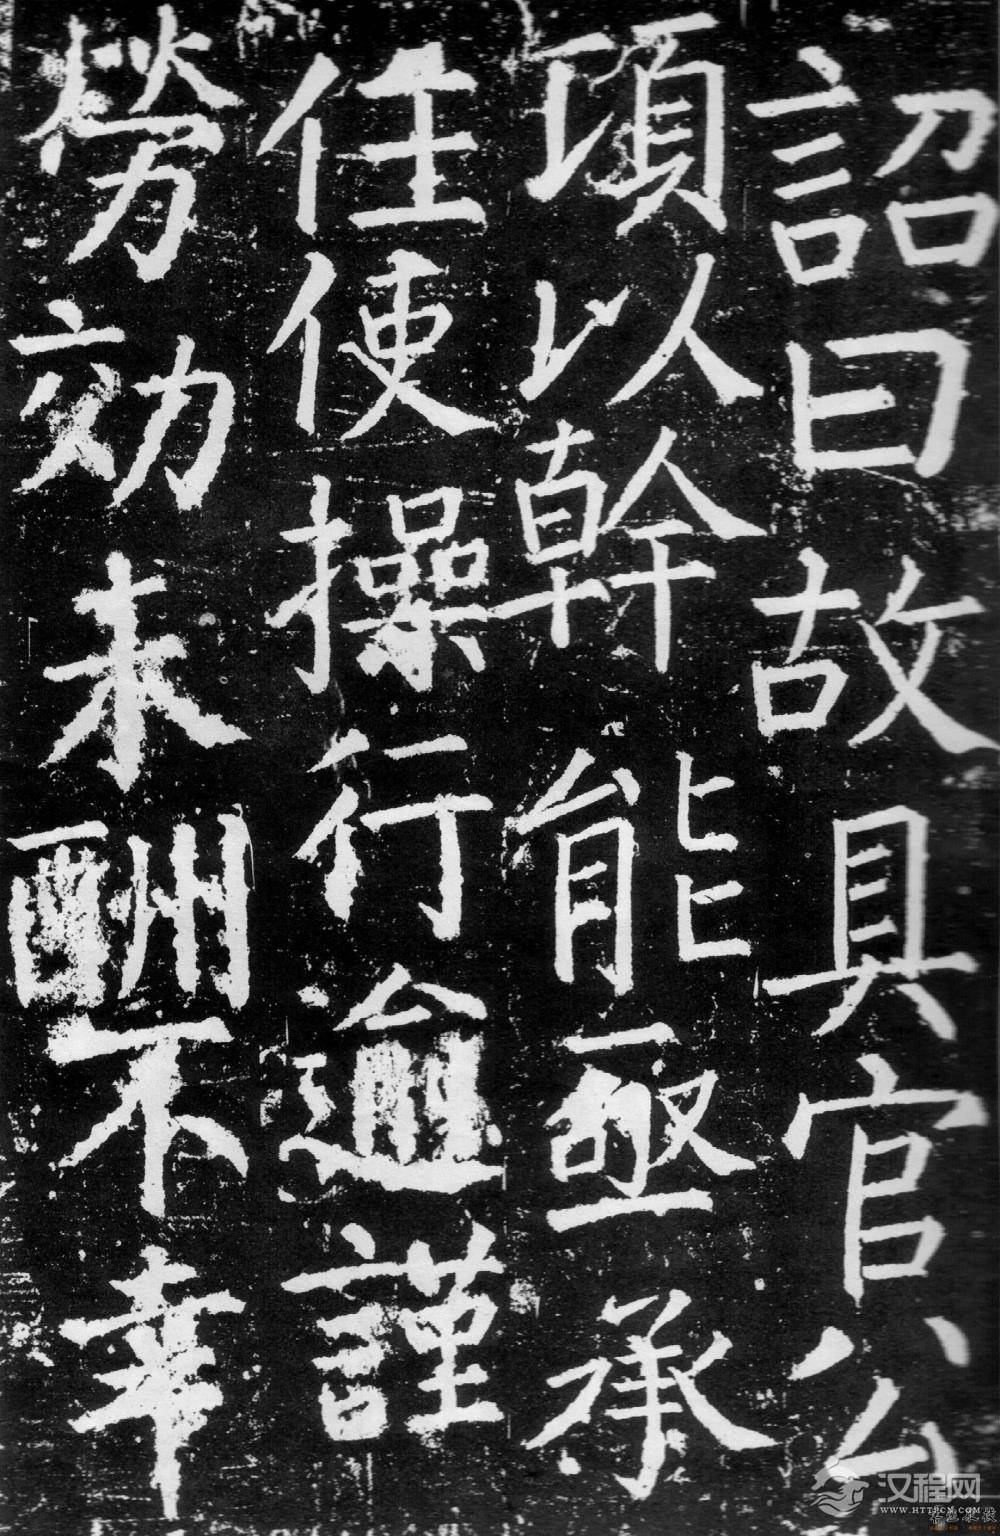 詔曰故具官公
頃以幹能亟承
任使操行逾謹
勞効未酬不幸
汉程网
WWW.HTTPCN.COM